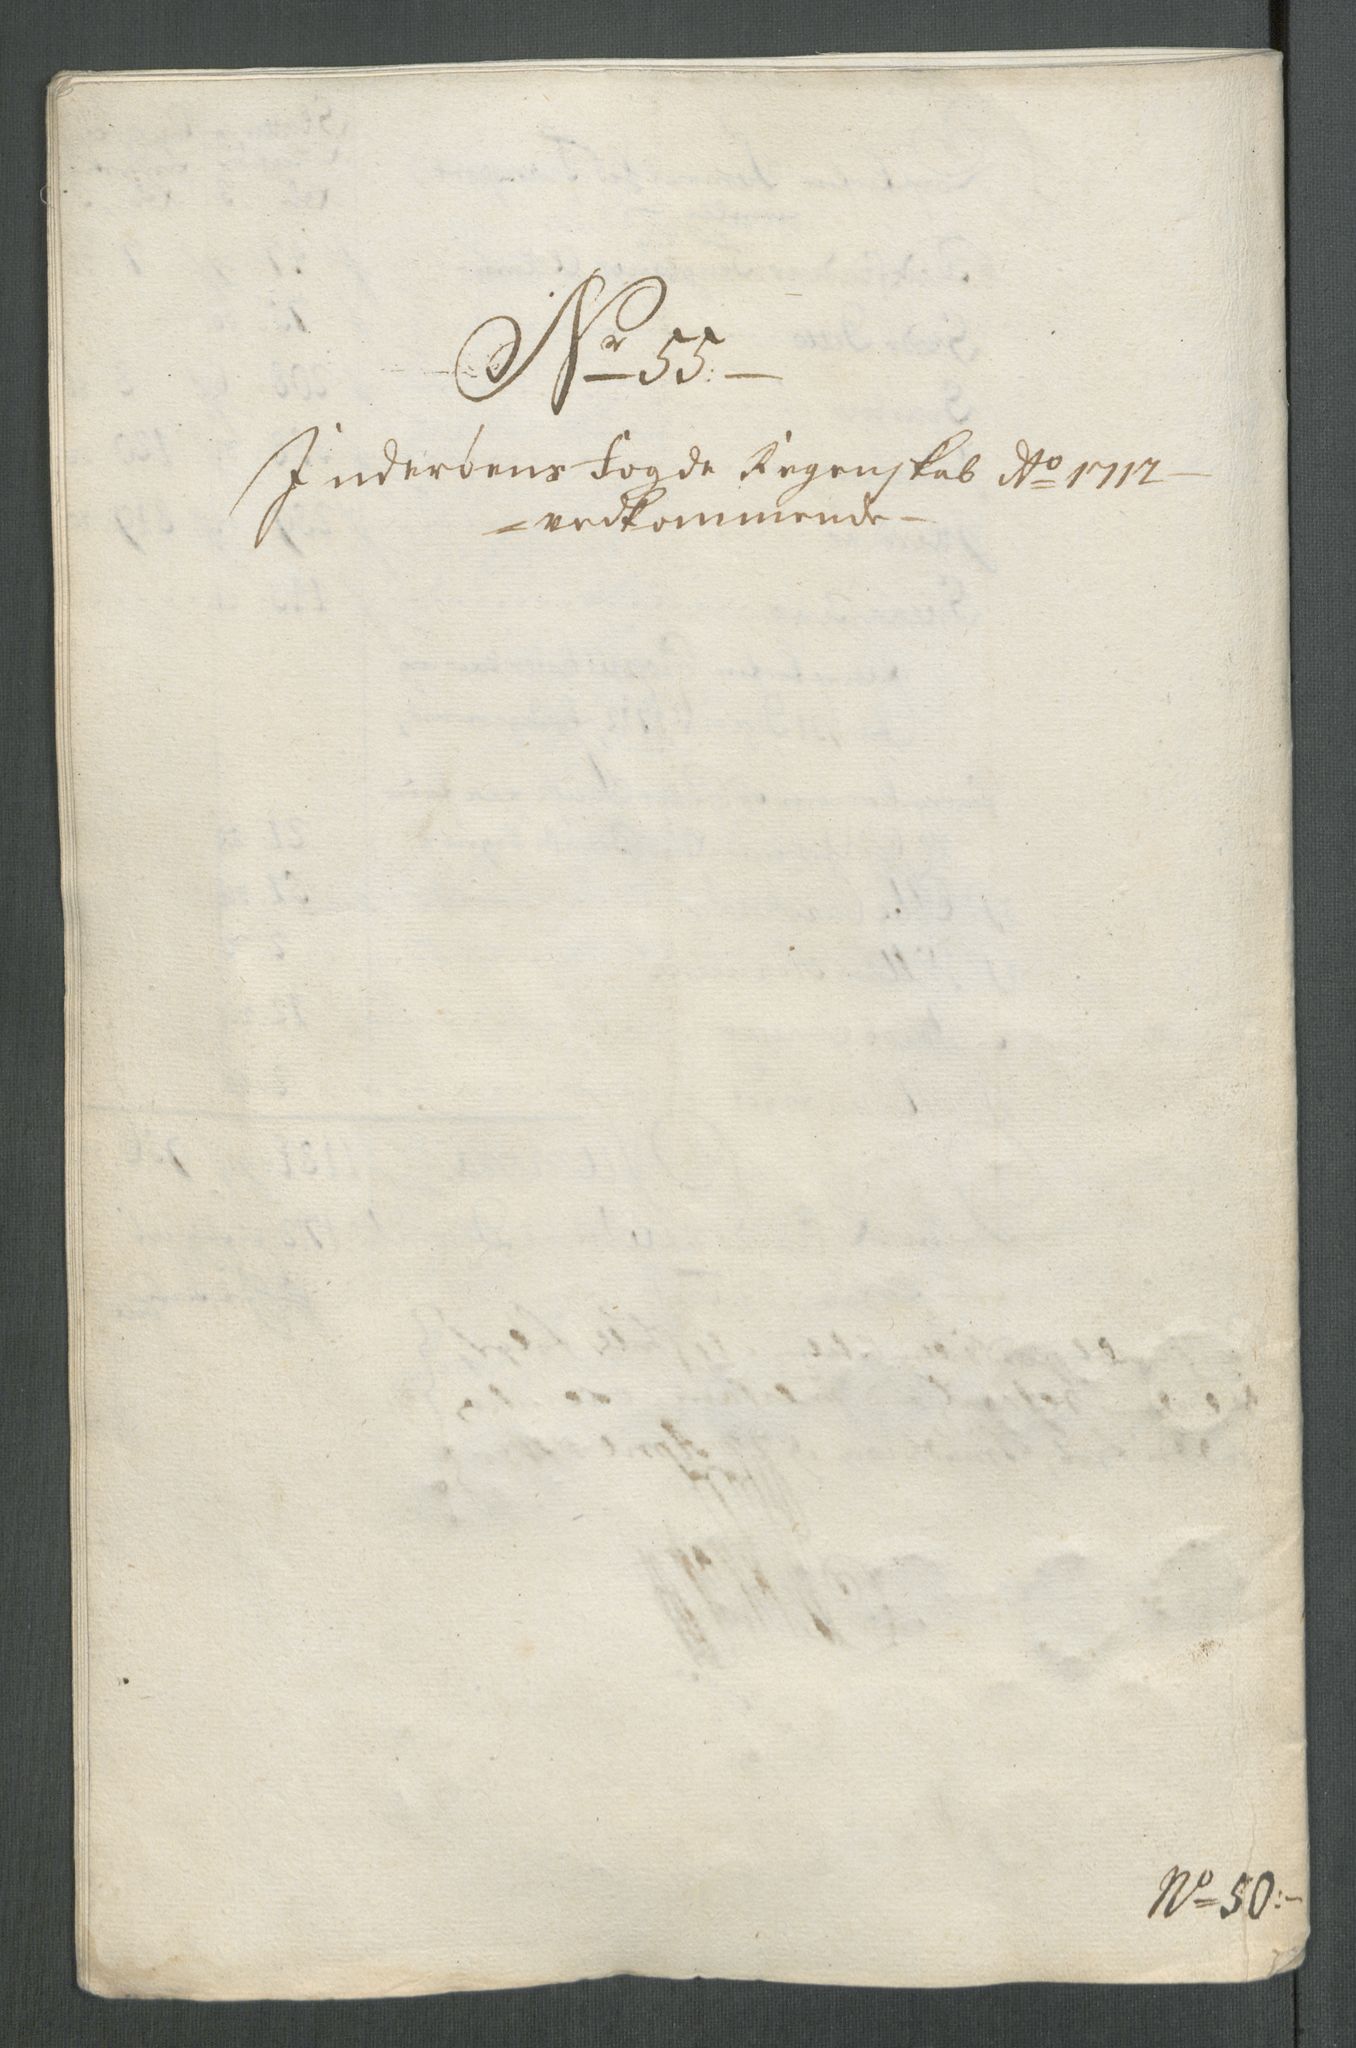 Nr 55:
Inderöens Fogde Regenskab Ao 1712
vedkommende
No 50: